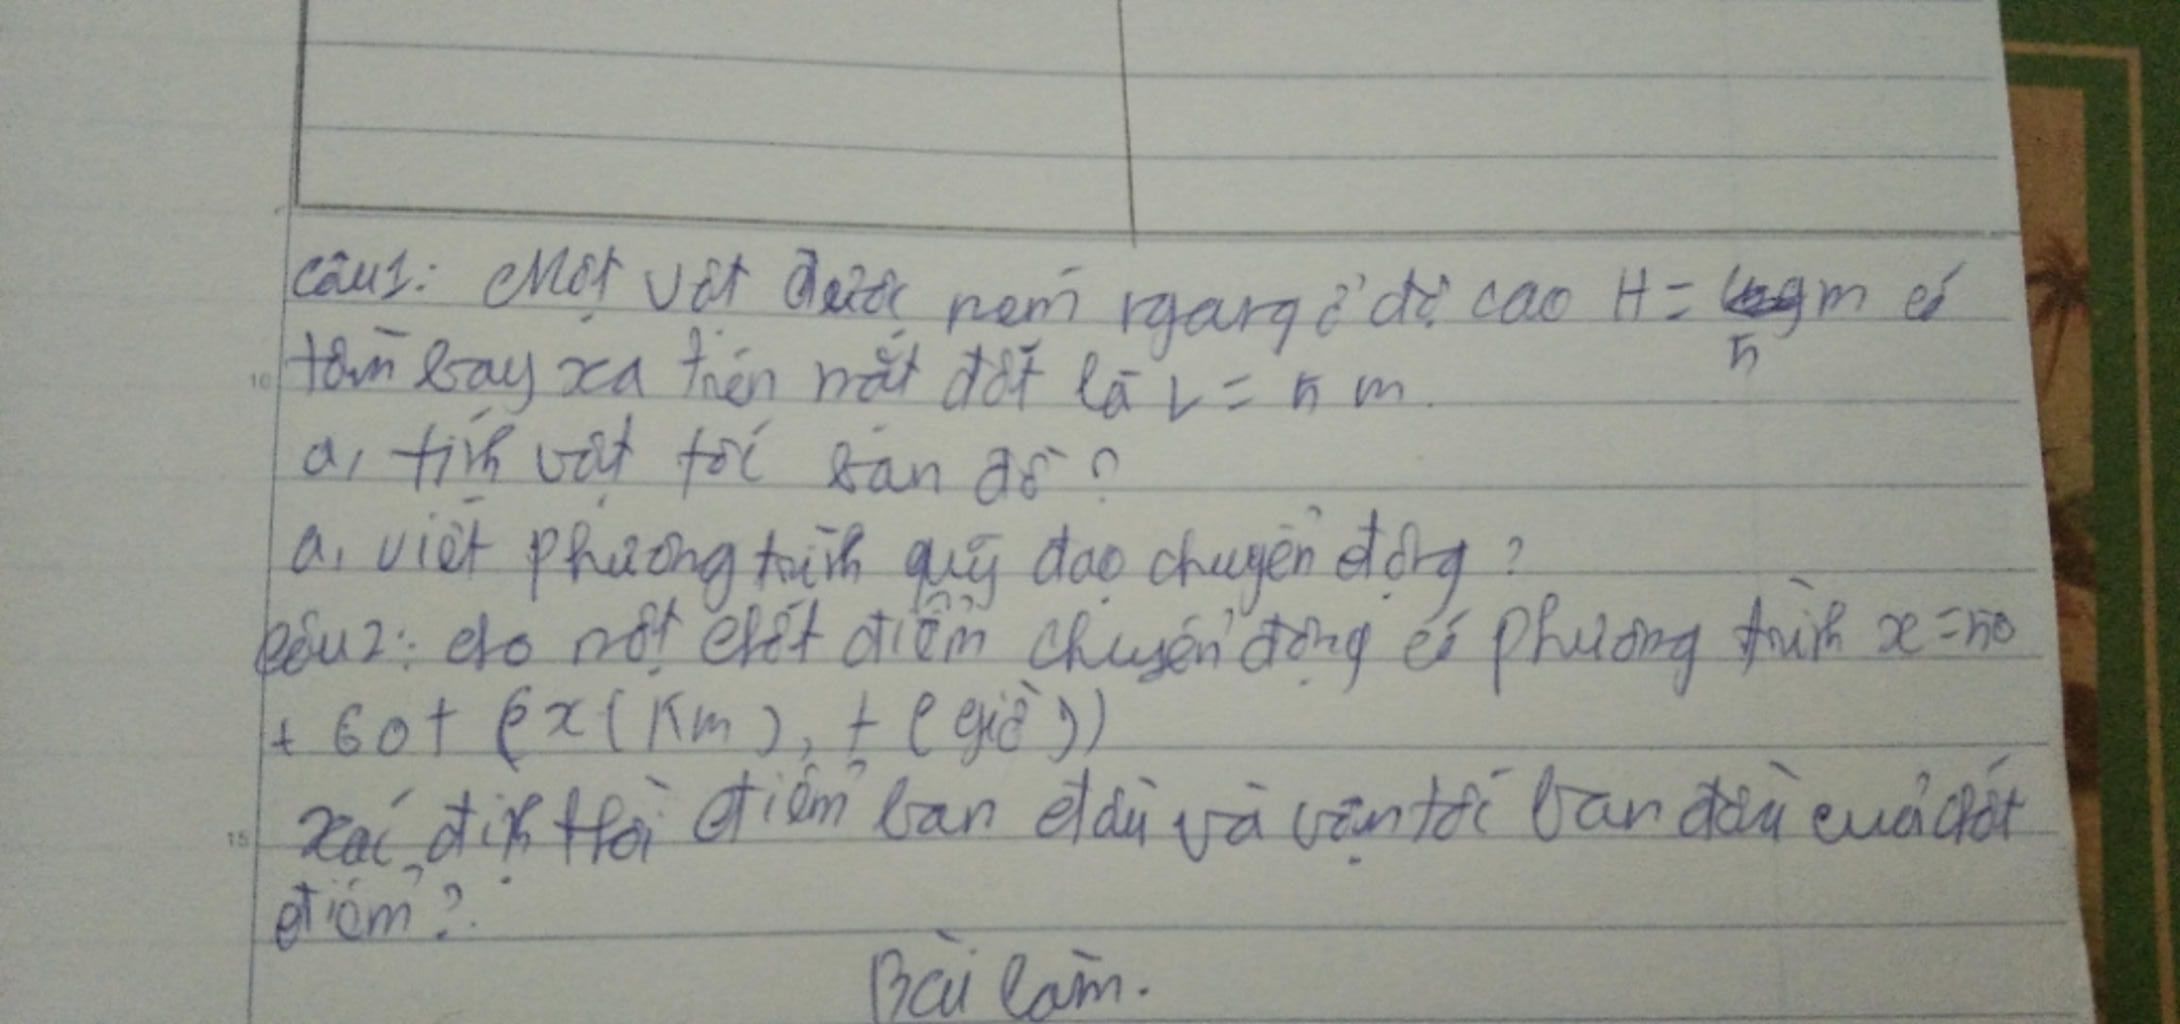 Câu1: Một vật được ném ngang ở độ cao H = m có
5
tầm bay xa trên mặt đất là L = 5 m.
a, tính vật tốc ban đầ ?
a, viết phương trình quỹ đạo chuyển động ?
Câu2: cho một chất điểm chuyển động có phương trình x = 50
+ 60t (x (Km), t (giờ))
xác định thời điểm ban đầu và vận tốc ban đầu của chất
điểm ?.
Bài làm.
10
15